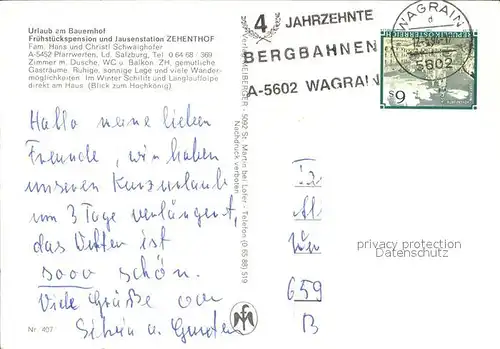 Urlaub am Bauernhof
Frühstückspension und Jausenstation ZEHENTHOF
Fam. Hans und Christl Schwaighofer
A-5452 Pfarrwerfen, Ld. Salzburg, Tel 0 64 68 / 369
Zimmer m. Dusche, WC u. Balkon ZH, gemütliche
Gasträume. Ruhige, sonnige Lage und viele Wander-
möglichkeiten. Im Winter Schilift und Langlaufloipe
direkt am Haus (Blick zum Hochkönig)
4 JAHRZEHNTE
BERGBAHNEN
A-5602 WAGRAIN
WAGRAIN
5602
REPUBLIK ÖSTERREICH
S 6
Hallo meine lieben
Freunde, wir haben
unseren Kurzurlaub
um 3 Tage verlängert,
das Wetter ist
sooo schön.
Viele Grüße von
Silvia u.
Nr. 407
5092 St. Martin bei Lofer - Telefon (0 65 88) 519
Nachdruck verboten
659
B
privacy protection
Datenschutz